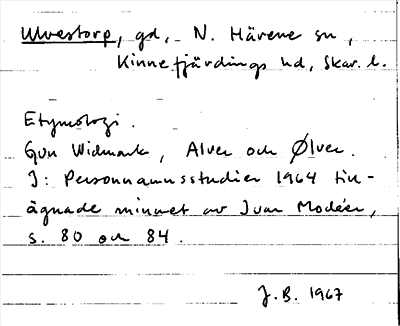 Ulvestorp, gd, N. Härene sn,
Kinnefjärdings hd, Skar. l.
Etymologi.
Gun Widmark, Alver och Ølver.
I: Personnamnsstudier 1964 till-
ägnade minnet av Ivar Modéer,
s. 80 och 84.
J.B. 1967